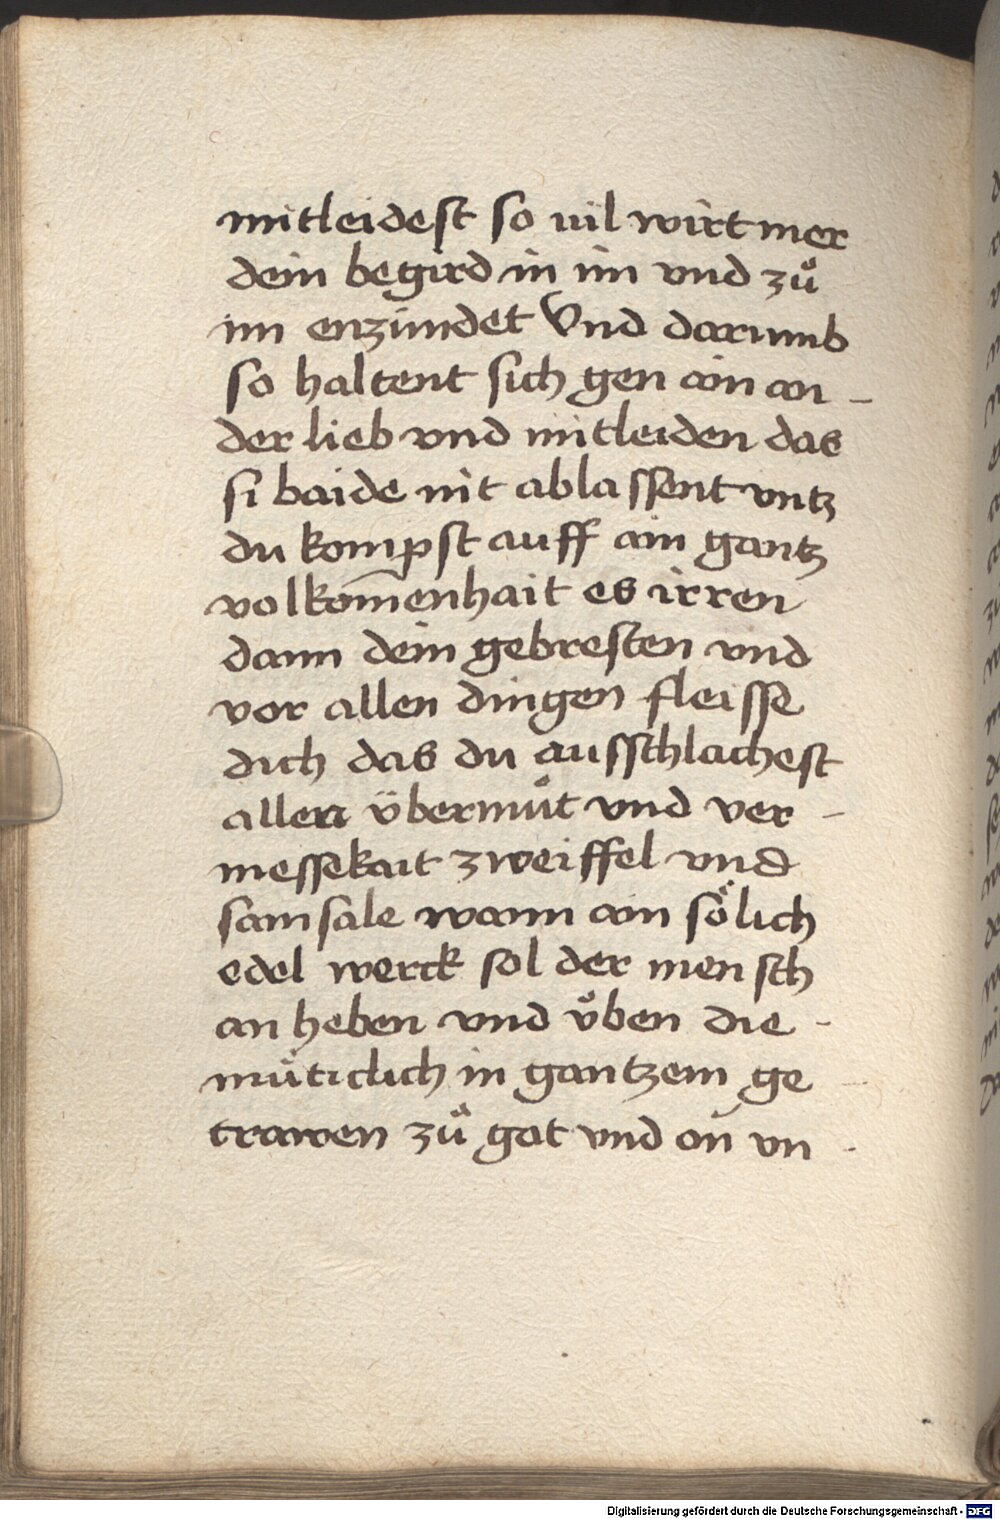 mitleidest so uil wirt mer
dein begird in im vnd zuͦ
im enzündet Vnd darumb
so haltent sich gen ain an -
der lieb vnd mitleiden das
si baide nit ablassent vntz
du kompst auff ain gantz
volkom̄enhait es irren
dann dein gebresten vnd
vor allen dingen fleisse
dich das du ausschlachest
allen übermuͦt vnd ver -
messekait zweiffel vnd
samsale wann ain soͤlich
edel werck sol der mensch
an heben vnd uͤben die -
muͤticlich in gantzem ge
trawen zuͦ got vnd on vn -
Digitalisierung gefördert durch die Deutsche Forschungsgemeinschaft - DFG